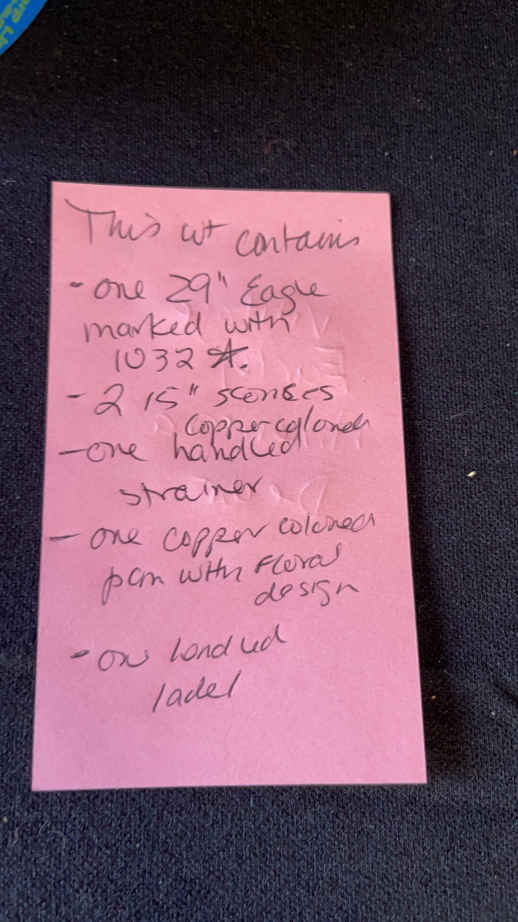 This lot contains
- one 29" Eagle
marked with
1032
- 2 15" sconses
copper colored
- one handled
strainer
- one copper colored
pan with floral
design
- one handled
ladel